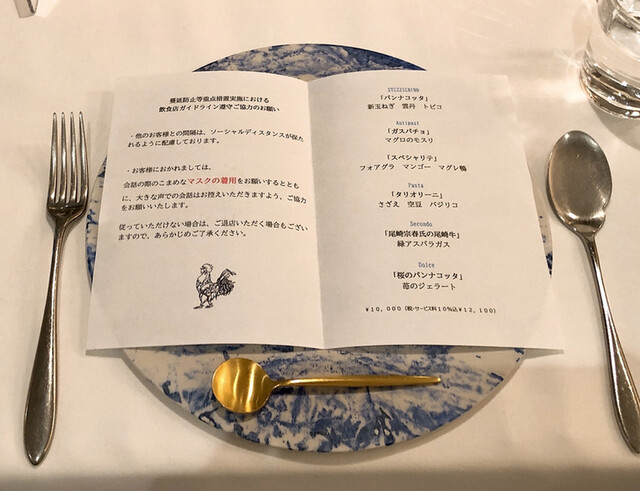 蔓延防止等重点措置実施における
飲食店ガイドライン遵守ご協力のお願い
・他のお客様との間隔は、ソーシャルディスタンスが保た
れるように配慮しております。
・お客様におかれましては、
会話の際のこまめなマスクの着用をお願いするととも
に、大きな声での会話はお控えいただきますよう、ご協力
をお願いいたします。
従っていただけない場合は、ご退店いただく場合もござい
ますので、あらかじめご了承ください。
「パンナコッタ」
新玉ねぎ 雲丹 トビコ
Antipast
「ガスパチョ」
マグロのモスリ
「スペシャリテ」
フォアグラ マンゴー マグレ鴨
Pasta
「タリオリーニ」
さざえ 空豆 バジリコ
Secondo
「尾崎宗春氏の尾崎牛」
緑アスパラガス
Dolce
「桜のパンナコッタ」
苺のジェラート
¥10,000（税・サービス料10%込¥12,100）